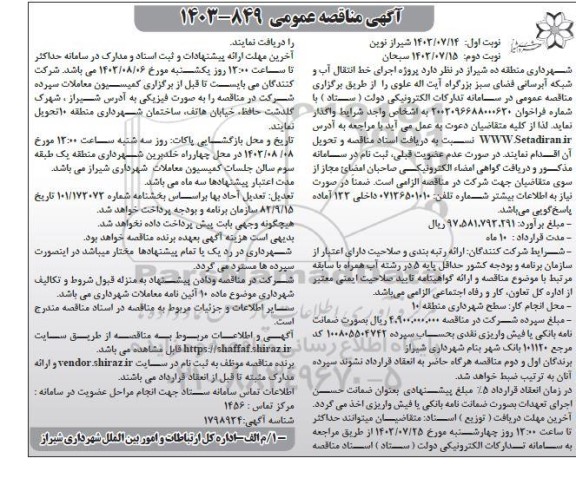 آگهی مناقصه عمومی ۸۴۹-۱۴۰۳
نوبت اول: ۱۴۰۳/۰۷/۱۴ شیراز نوین
نوبت دوم: ۱۴۰۳/۰۷/۱۵ سبحان
شهرداری منطقه ده شیراز در نظر دارد پروژه اجرای خط انتقال آب و
شبکه آبرسانی فضای سبز بزرگراه آیت اله علوی را از طریق برگزاری
مناقصه عمومی در سامانه تدارکات الکترونیکی دولت (ستاد) با
شماره فراخوان ۲۰۰۳۰۹۶۶۸۸۰۰۰۶۲۰ به اشخاص واجد شرایط واگذار
نماید. لذا از کلیه متقاضیان دعوت به عمل می آید با مراجعه به آدرس
WWW.Setadiran.ir نسبت به دریافت اسناد مناقصه و تحویل
آن اقدام نمایند. در صورت عدم عضویت قبلی، ثبت نام در سامانه
مذکور و دریافت گواهی امضاء الکترونیکی صاحبان امضائ مجاز از
سوی متقاضیان جهت شرکت در مناقصه الزامی است. ضمنا در صورت
نیاز به اطلاعات بیشتر شماره تلفن: ۰۷۱۳۶۵۰۱۰۱۰ داخلی ۱۲۳ آماده
پاسخ‌گویی می‌باشد.
- مبلغ برآورد: ۹۷،۵۸۱،۷۹۲،۲۹۱ ریال
- مدت قرارداد: ۱۰ ماه
- شرایط شرکت کنندگان: ارائه رتبه بندی و صلاحیت دارای اعتبار از
سازمان برنامه و بودجه کشور حداقل پایه ۵ در رشته آب همراه با سابقه
مرتبط با موضوع مناقصه و ارائه گواهینامه تایید صلاحیت ایمنی معتبر
از اداره کل تعاون، کار و رفاه اجتماعی الزامی می‌باشد.
- محل انجام کار: سطح شهرداری منطقه ۱۰
- مبلغ سپرده شرکت در مناقصه ۴،۹۰۰،۰۰۰،۰۰۰ ریال بصورت ضمانت
نامه بانکی یا فیش واریزی نقدی بحساب سپرده ۱۰۰۸۰۵۵۰۴۷۴۲ کد
مرجع ۱۰۱۱۲۰ بانک شهر بنام شهرداری شیراز
برندگان اول و دوم مناقصه هرگاه حاضر به انعقاد قرارداد نشوند سپرده
آنان به ترتیب ضبط خواهد شد.
در زمان انعقاد قرارداد ۵٪ مبلغ پیشنهادی بعنوان ضمانت حسن
اجرای تعهدات بصورت ضمانت نامه بانکی یا فیش واریزی اخذ می گردد.
آخرین مهلت دریافت (توزیع) اسناد: متقاضیان میتوانند حداکثر
تا ساعت ۱۳:۰۰ روز چهارشنبه مورخ ۱۴۰۳/۰۷/۲۵ از طریق مراجعه
به سامانه تدارکات الکترونیکی دولت (ستاد) اسناد مناقصه
را دریافت نمایند.
آخرین مهلت ارائه پیشنهادات و ثبت اسناد و مدارک در سامانه حداکثر
تا ساعت ۱۳:۰۰ روز یکشنبه مورخ ۱۴۰۳/۰۸/۰۶ می باشد. شرکت
کنندگان می بایست تا قبل از برگزاری کمیسیون معاملات سپرده
شرکت در مناقصه را به صورت فیزیکی به آدرس شیراز، شهرک
گلدشت حافظ، خیابان هاتف، ساختمان شهرداری منطقه ۱۰ تحویل
نمایند.
تاریخ و محل بازگشایی پاکات: روز سه شنبه ساعت ۱۳:۰۰ مورخ
۱۴۰۳/۰۸/۰۸ در محل چهارراه خلدبرین شهرداری منطقه یک طبقه
سوم سالن جلسات کمیسیون معاملات شهرداری شیراز می باشد.
مدت اعتبار پیشنهادها سه ماه می باشد.
تعدیل: تعدیل آحاد بها براساس بخشنامه شماره ۱۰۱/۱۷۳۰۷۳ تاریخ
۸۲/۹/۱۵ سازمان برنامه و بودجه پرداخت خواهد شد.
هیچگونه وجهی بابت پیش پرداخت داده نخواهد شد.
بدیهی است هزینه آگهی بعهده برنده مناقصه خواهد بود.
شهرداری در رد یک یا تمام پیشنهادها مختار میباشد در اینصورت
سپرده ها مسترد می گردد.
شرکت در مناقصه ودادن پیشنهاد به منزله قبول شروط و تکالیف
شهرداری موضوع ماده ۱۰ آئین نامه معاملات شهرداری می باشد.
سایر اطلاعات و جزئیات مربوط به مناقصه در اسناد مناقصه مندرج
است.
آگهی و اطلاعات مربوط به مناقصه از طریق سایت
https://shaffaf.shiraz.ir قابل مشاهده می باشد.
برنده مناقصه موظف به ثبت نام در سایت vendor.shiraz.ir و ارائه
مدارک مثبته تا قبل از انعقاد قرارداد می باشد.
اطلاعات تماس سامانه ستاد جهت انجام مراحل عضویت در سامانه:
مرکز تماس: ۱۴۵۶
شناسه آگهی: ۱۷۹۸۹۲۴
۱/م الف - اداره کل ارتباطات و امور بین الملل شهرداری شیراز